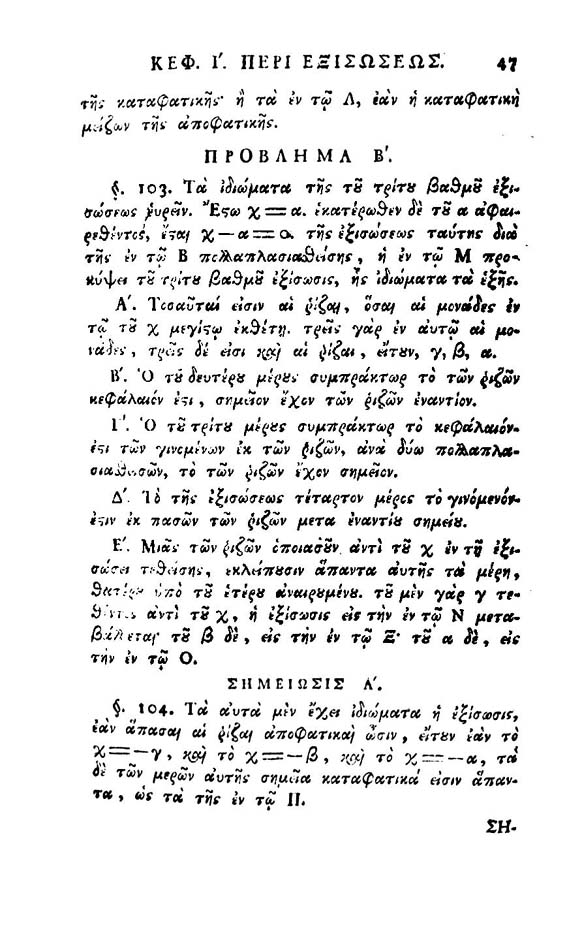 ΚΕΦ. Ι'. ΠΕΡΙ ΕΞΙΣΩΣΕΩΣ. 47
τῆς καταφατικῆς· ἢ τὰ ἐν τῷ Λ, ἐὰν ἡ καταφατικὴ
μείζων τῆς ἀποφατικῆς.
ΠΡΟΒΛΗΜΑ Β'.
§. 103. Τὰ ἰδιώματα τῆς τȣ͂ τρίτȣ βαθμȣ͂ ἐξι-
σώσεως εὑρεῖν. Ἔϛω χ = α. ἑκατέρωθεν δὲ τȣ͂ α ἀφαι-
ρεθέντος, ἔϛαι χ — α = ο. τῆς ἐξισώσεως ταύτης διὰ
τῆς ἐν τῷ Β πολλαπλασιαθείσης, ἡ ἐν τῷ Μ προ-
κύψει τȣ͂ τρίτȣ βαθμȣ͂ ἐξίσωσις, ἧς ἰδιώματα τὰ ἑξῆς.
Α'. Τοσαῦταί εἰσιν αἱ ῥίζαι, ὅσαι αἱ μονάδες ἐν
τῷ τȣ͂ χ μεγίϛῳ ἐκθέτῃ. τρεῖς γὰρ ἐν αὐτῷ αἱ μο-
νάδες, τρεῖς δέ εἰσι καὶ αἱ ῥίζαι, εἴτȣν, γ, β, α.
Β'. Ὁ τȣ͂ δευτέρȣ μέρȣς συμπράκτωρ τὸ τῶν ῥιζῶν
κεφάλαιόν ἐϛι, σημεῖον ἔχον τῶν ῥιζῶν ἐναντίον.
Γ'. Ὁ τȣ͂ τρίτȣ μέρȣς συμπράκτωρ τὸ κεφάλαιόν
ἐϛι τῶν γινομένων ἐκ τῶν ῥιζῶν, ἀνὰ δύω πολλαπλα-
σιαθεισῶν, τὸ τῶν ῥιζῶν ἔχον σημεῖον.
Δ'. Τὸ τῆς ἐξισώσεως τέταρτον μέρος τὸ γινόμενόν
ἐϛιν ἐκ πασῶν τῶν ῥιζῶν μετὰ ἐναντίȣ σημείȣ.
Ε'. Μιᾶς τῶν ῥιζῶν ὁποιασȣ͂ν ἀντὶ τȣ͂ χ ἐν τῇ ἐξι-
σώσει τεθείσης, ἐκλείπȣσιν ἅπαντα αὐτῆς τὰ μέρη,
θατέρȣ ὑπὸ τȣ͂ ἑτέρȣ ἀναιρȣμένȣ. τȣ͂ μὲν γὰρ γ τε-
θέντος ἀντὶ τȣ͂ χ, ἡ ἐξίσωσις εἰς τὴν ἐν τῷ Ν μετα-
βάλλεται· τȣ͂ β δὲ, εἰς τὴν ἐν τῷ Ξ· τȣ͂ α δὲ, εἰς
τὴν ἐν τῷ Ο.
ΣΗΜΕΙΩΣΙΣ Α'.
§. 104. Τὰ αὐτὰ μὲν ἔχει ἰδιώματα ἡ ἐξίσωσις,
ἐὰν ἅπασαι αἱ ῥίζαι ἀποφατικαὶ ὦσιν, εἴτȣν ἐὰν τὸ
χ = — γ, καὶ τὸ χ = — β, καὶ τὸ χ = — α, τὰ
δὲ τῶν μερῶν αὐτῆς σημεῖα καταφατικά εἰσιν ἅπαν-
τα, ὡς τὰ τῆς ἐν τῷ Π.
ΣΗ-